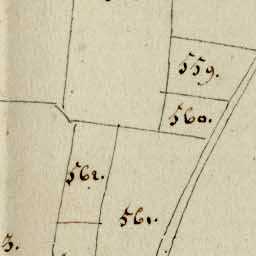 559.
560.
562.
561.